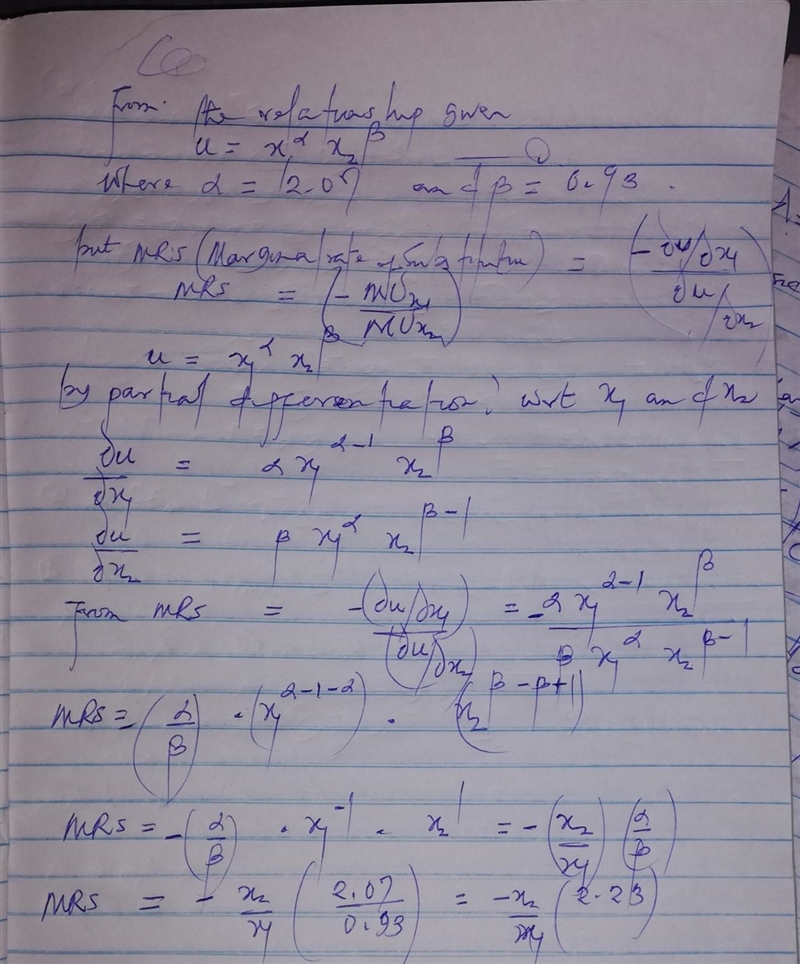 From the relationship given
u = x₁^α x₂^β —— ①
where α = 2.07 and β = 0.93.
but MRS (Marginal rate of Substitution) = (-∂u/∂x₁ / ∂u/∂x₂)
MRS = (- MUx₁ / MUx₂)
u = x₁^α x₂^β
by partial differentiation, wrt x₁ and x₂
∂u/∂x₁ = α x₁^(α-1) x₂^β
∂u/∂x₂ = β x₁^α x₂^(β-1)
From MRS = -(∂u/∂x₁)/(∂u/∂x₂) = -α x₁^(α-1) x₂^β / β x₁^α x₂^(β-1)
MRS = (α/β) · (x₁^(α-1-α)) · (x₂^(β-β+1))
MRS = -(α/β) · x₁^-1 · x₂^1 = -(x₂/x₁) (α/β)
MRS = - x₂/x₁ (2.07/0.93) = -x₂/x₁ (2.23)